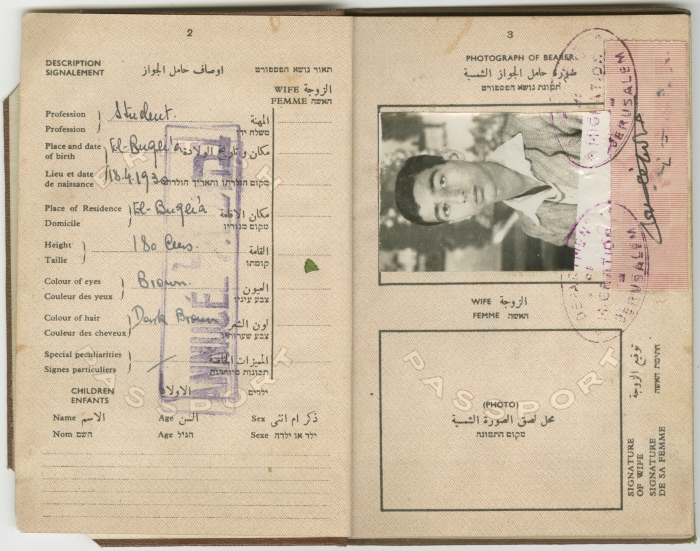 2
DESCRIPTION
SIGNALEMENT
اوصاف حامل الجواز
תאור נושא הפספורט
WIFE الزوجة
FEMME האשה
Profession
Profession
Student.
المهنة
משלח יד
Place and date
of birth
El-Buqei'a
مكان وتاريخ الولادة
Lieu et date
de naissance
18.4.1930
מקום הולדתו ותאריך הולדתו
Place of Residence
Domicile
El-Buqei'a
مكان الاقامة
מקום מגוריו
Height
Taille
180 Cms.
القامة
קומתו
Colour of eyes
Couleur des yeux
Brown.
العيون
צבע עיניו
Colour of hair
Couleur des cheveux
Dark Brown
لون الشعر
צבע שערותיו
Special peculiarities
Signes particuliers
المميزات الخاصة
תכונות מיוחדות
CHILDREN
ENFANTS
الاولاد
ילדים
Name الاسم Age السن Sex ذكر ام انثى
Nom השם Age הגיל Sexe ילד או ילדה
PASSPORT
CANCELLED
3
PHOTOGRAPH OF BEARER
صورة حامل الجواز الشمسية
תמונת נושא הפספורט
DEPARTMENT OF MIGRATION
JERUSALEM
DEPARTMENT OF MIGRATION
JERUSALEM
WIFE الزوجة
FEMME האשה
PASSPORT
(PHOTO)
محل لصق الصورة الشمسية
מקום התמונה
SIGNATURE
OF WIFE
SIGNATURE
DE SA FEMME
توقيع الزوجة
חתימת האשה